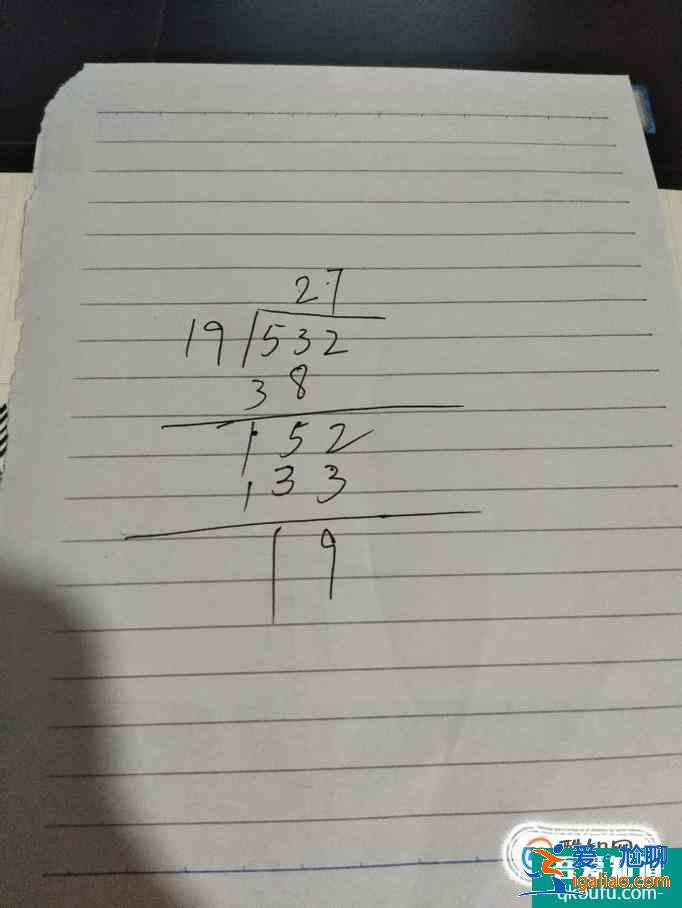 27
19 532
38
152
133
19
爱尬聊
igaliao.com
qkoufu.com